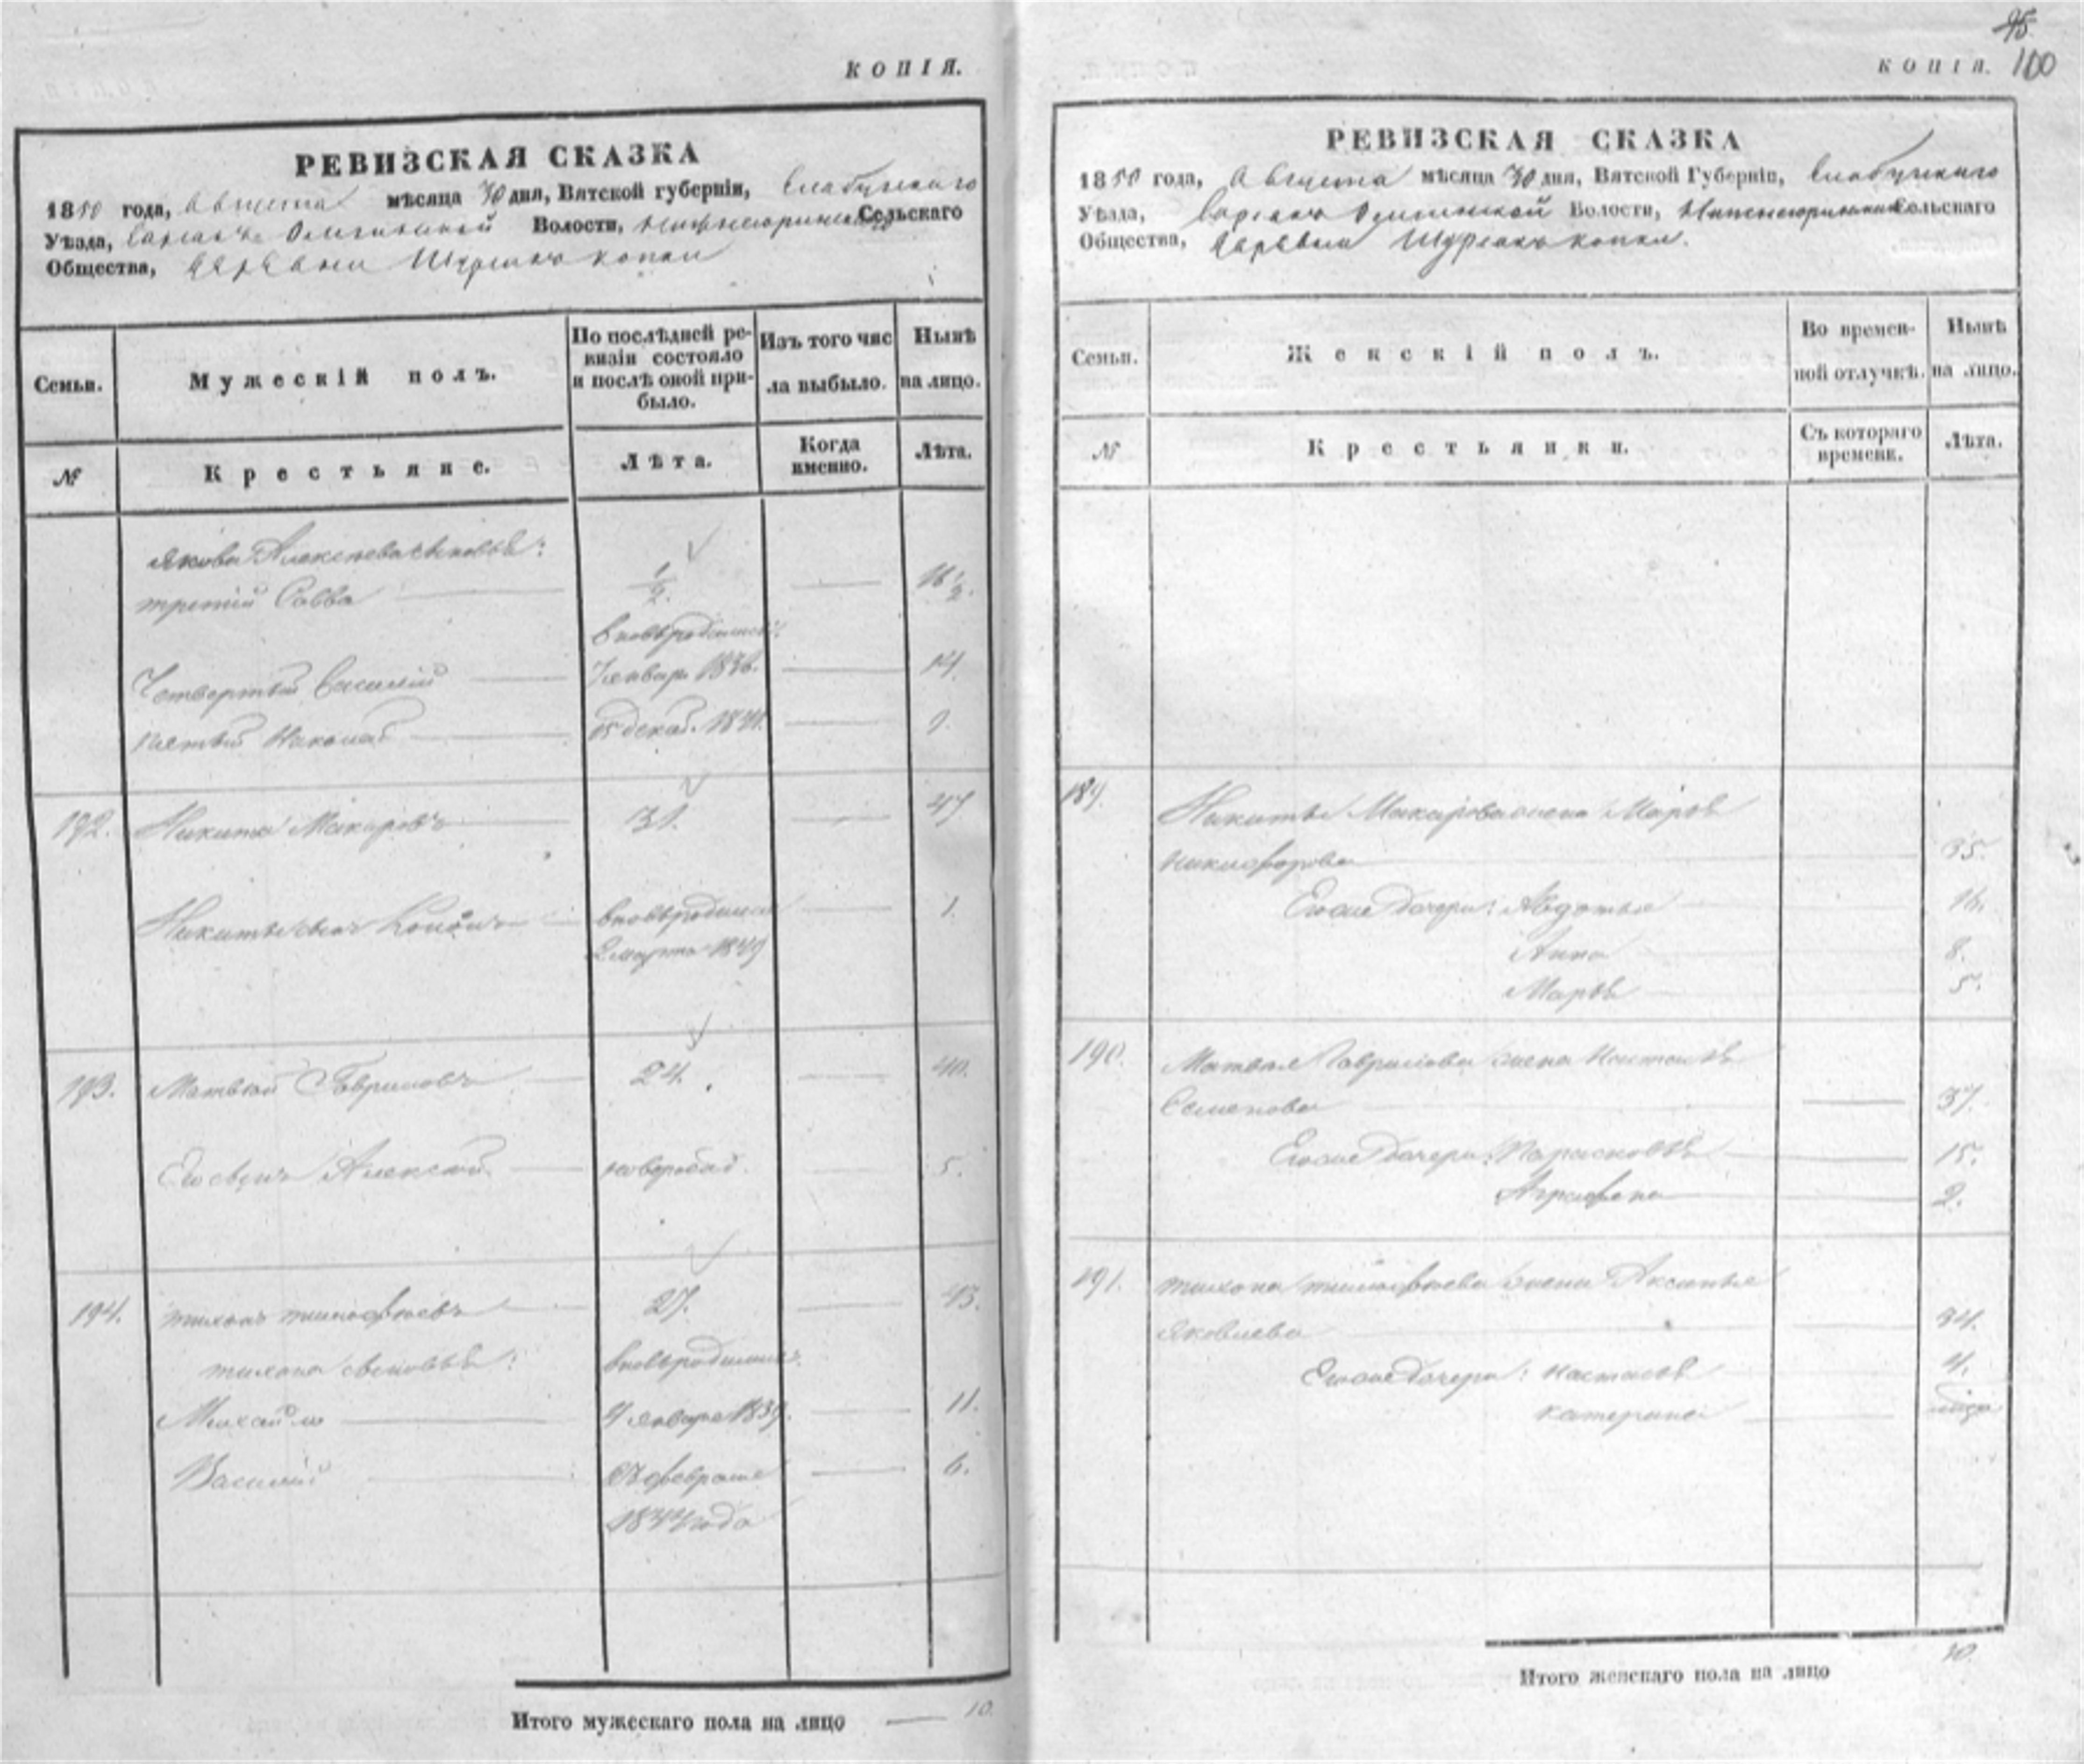 КОПІЯ.
РЕВИЗСКАЯ СКАЗКА
1850 года, Августа мѣсяца 30 дня, Вятской губерніи, Елабужскаго
Уѣзда, Волости, Сельскаго
Общества, деревни
Семьи.
Мужескій полъ.
По послѣдней ре-
визіи состояло
и послѣ оной при-
было.
Изъ того чис
ла выбыло.
Нынѣ
на лицо.
№
Крестьяне.
Лѣта.
Когда
именно.
Лѣта.
Якова Алексѣева сыновья:
третій Савва 1/2 16 1/2.
вновьрожденные:
Четвертый Василій 7 январ. 1836. 14.
пятый Николай декаб. 1841. 9.
192. Никита Макаровъ 31. 47
Никиты сынъ вновьродился 1.
марта 1849
193. Матвѣй Гавриловъ 24. 40.
Его сынъ Алексѣй 5.
194. тихонъ тимофѣевъ 27. 43.
тихона сыновья: вновьродились:
Михайло 4 января 1839. 11.
Василій февраля 6.
1844 года
Итого мужескаго пола на лицо 10.
95
КОПІЯ. 100
РЕВИЗСКАЯ СКАЗКА
1850 года, Августа мѣсяца 30 дня, Вятской Губерніи, Елабужскаго
Уѣзда, Волости, Сельскаго
Общества, деревни
Семьи.
Женскій полъ.
Во времен-
ной отлучкѣ.
Нынѣ
на лицо.
№
Крестьянки.
Съ котораго
времени.
Лѣта.
189. Никиты Макарова жена Марья
никифорова 35.
Егоже дочери: Авдотья 16.
Анна 8.
Марья 5.
190. Матвея Гаврилова жена Настасья
Семенова 37.
Егоже дочери: Парасковья 15.
Аграфена 2.
191. тихона тимофѣева жена Аксинья
Яковлева 34.
Егоже дочери: настасья 4.
катерина
Итого женскаго пола на лицо 10.